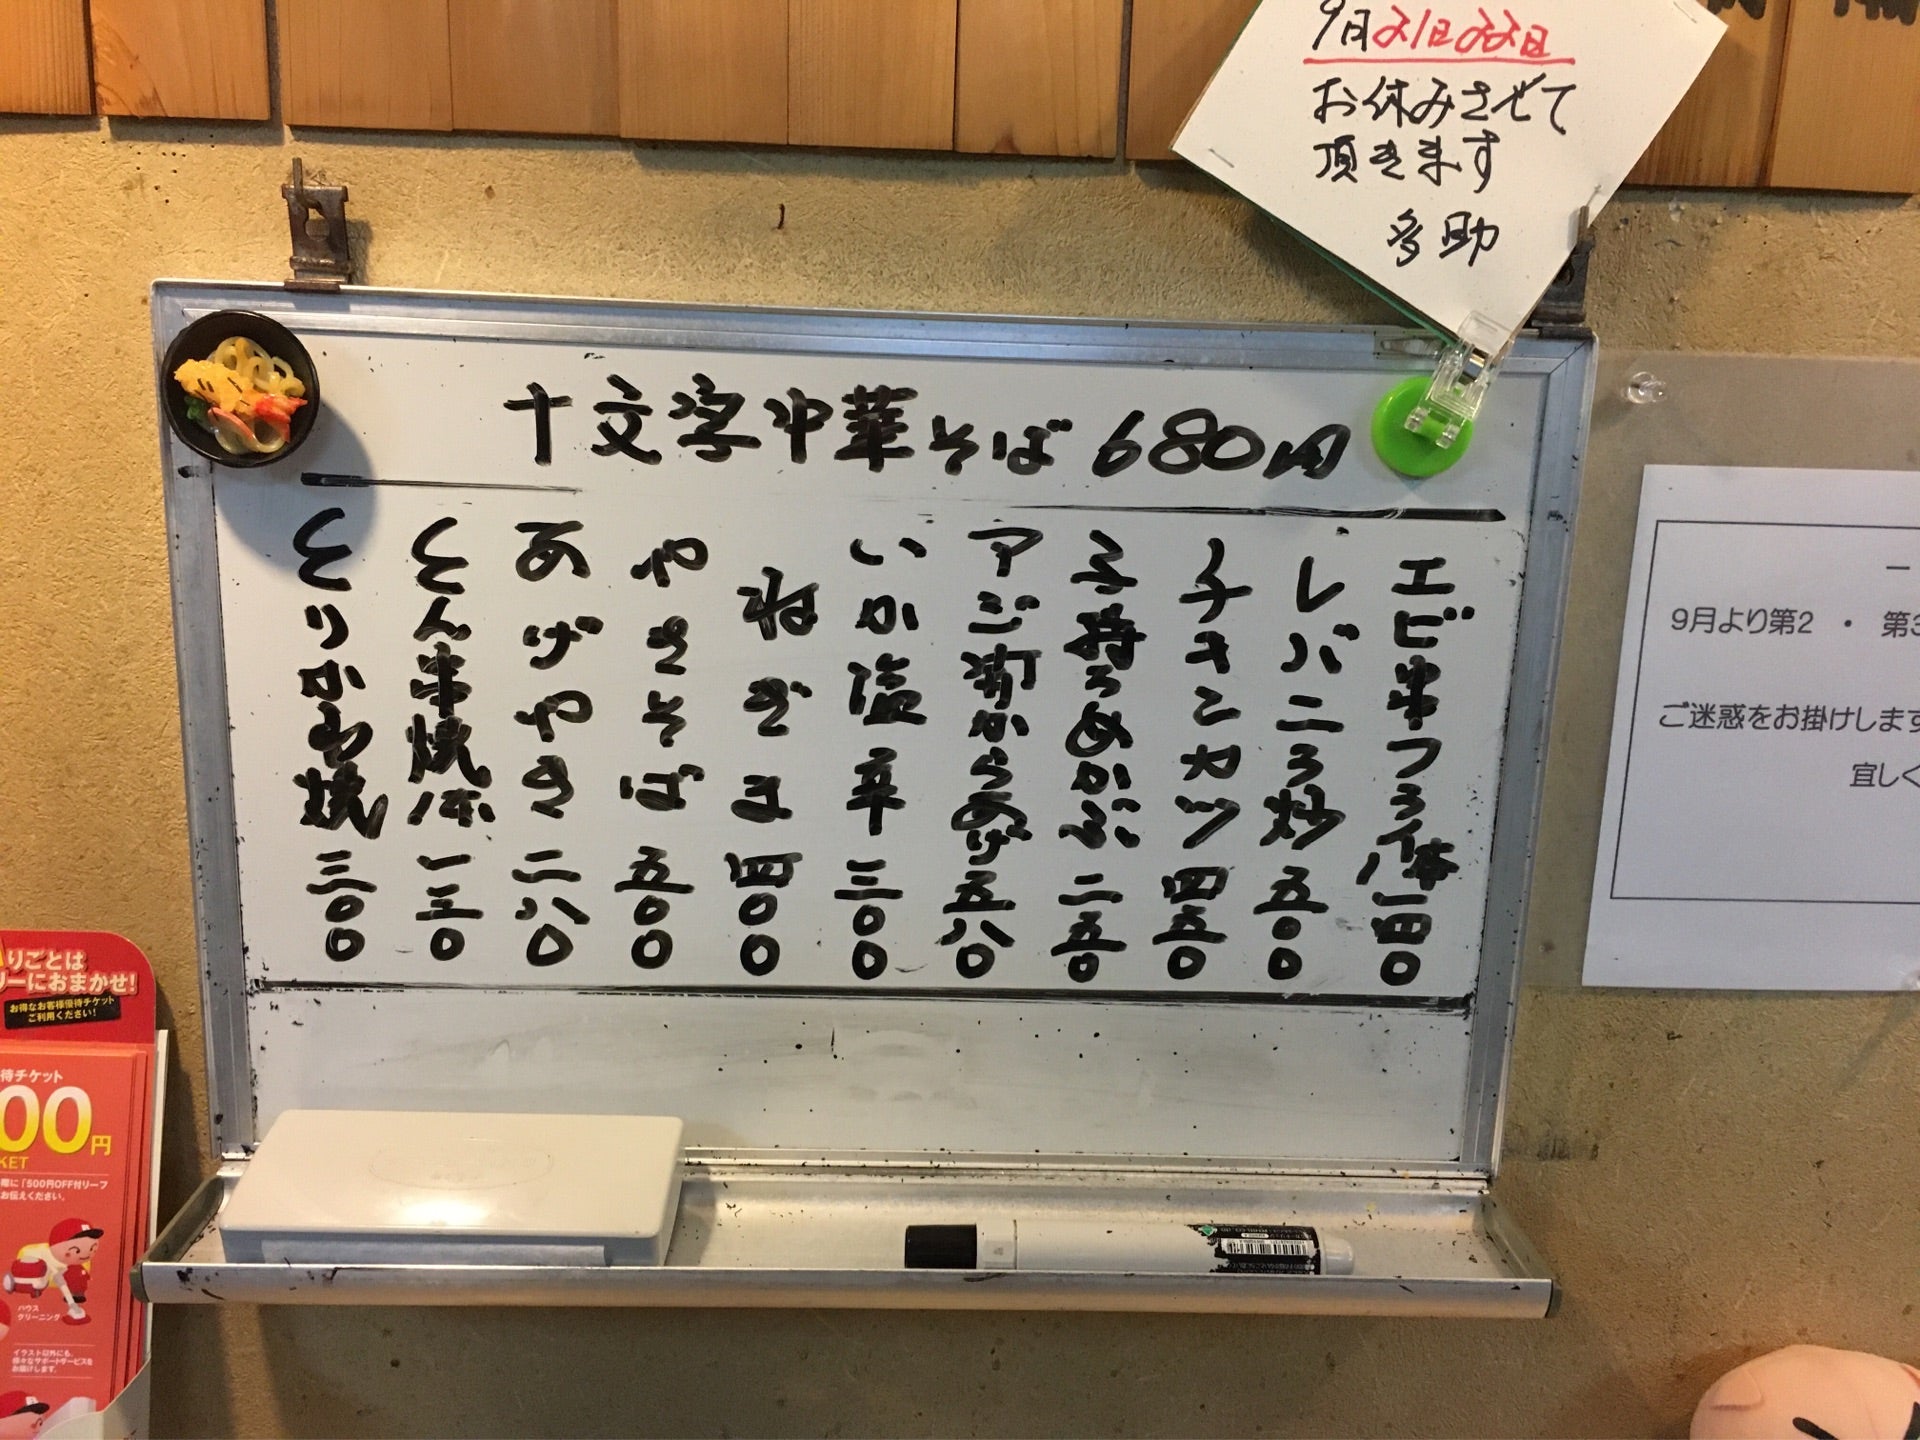 9月21日22日
お休みさせて
頂きます
多助
十文字中華そば680円
エビ串フライ1本一四〇
レバニラ炒五〇〇
チキンカツ四五〇
子持ちめかぶ二五〇
アゴ軟からあげ五八〇
いか塩辛三〇〇
ねぎま四〇〇
やきそば五〇〇
あげやき二八〇
とん串焼1本一三〇
とりかわ焼三〇〇
9月より第2・第3
ご迷惑をお掛けします
宜しく
りごとは
リーにおまかせ!
お得なお客様優待チケット
ご利用ください!
待チケット
00円
KET
際に「500円OFF付リーフ
お伝えください。
ハウス
クリーニング
イラスト以外にも、
様々なサポートサービスを
お届けします。